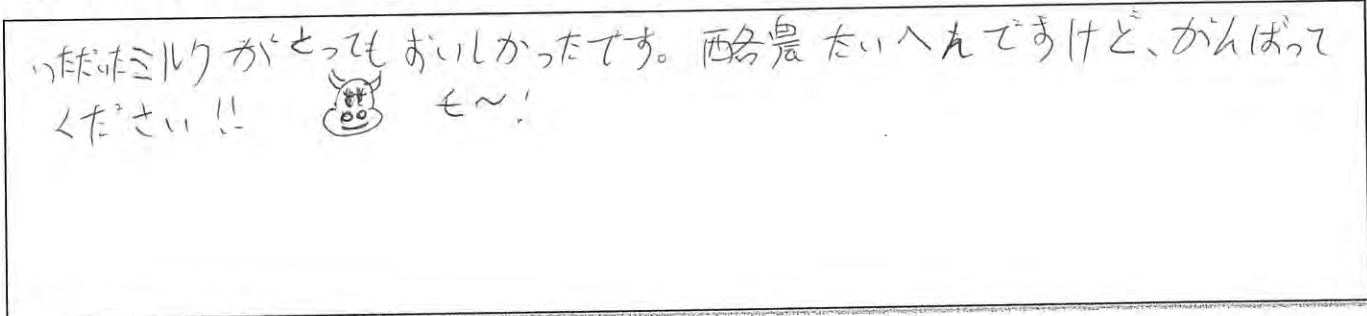 いただいたミルクがとってもおいしかったです。酪農たいへんですけど、がんばって
ください!! モ〜!